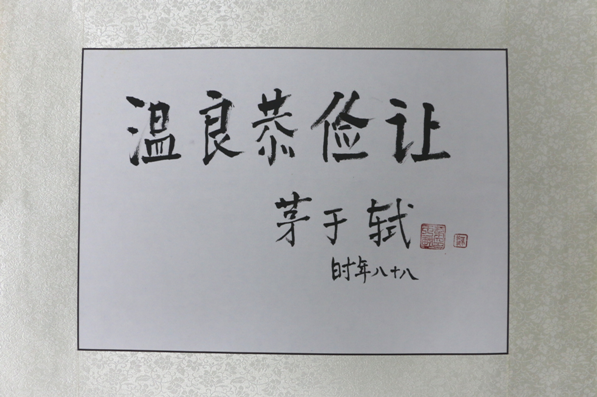 温良恭俭让
茅于轼
时年八十八